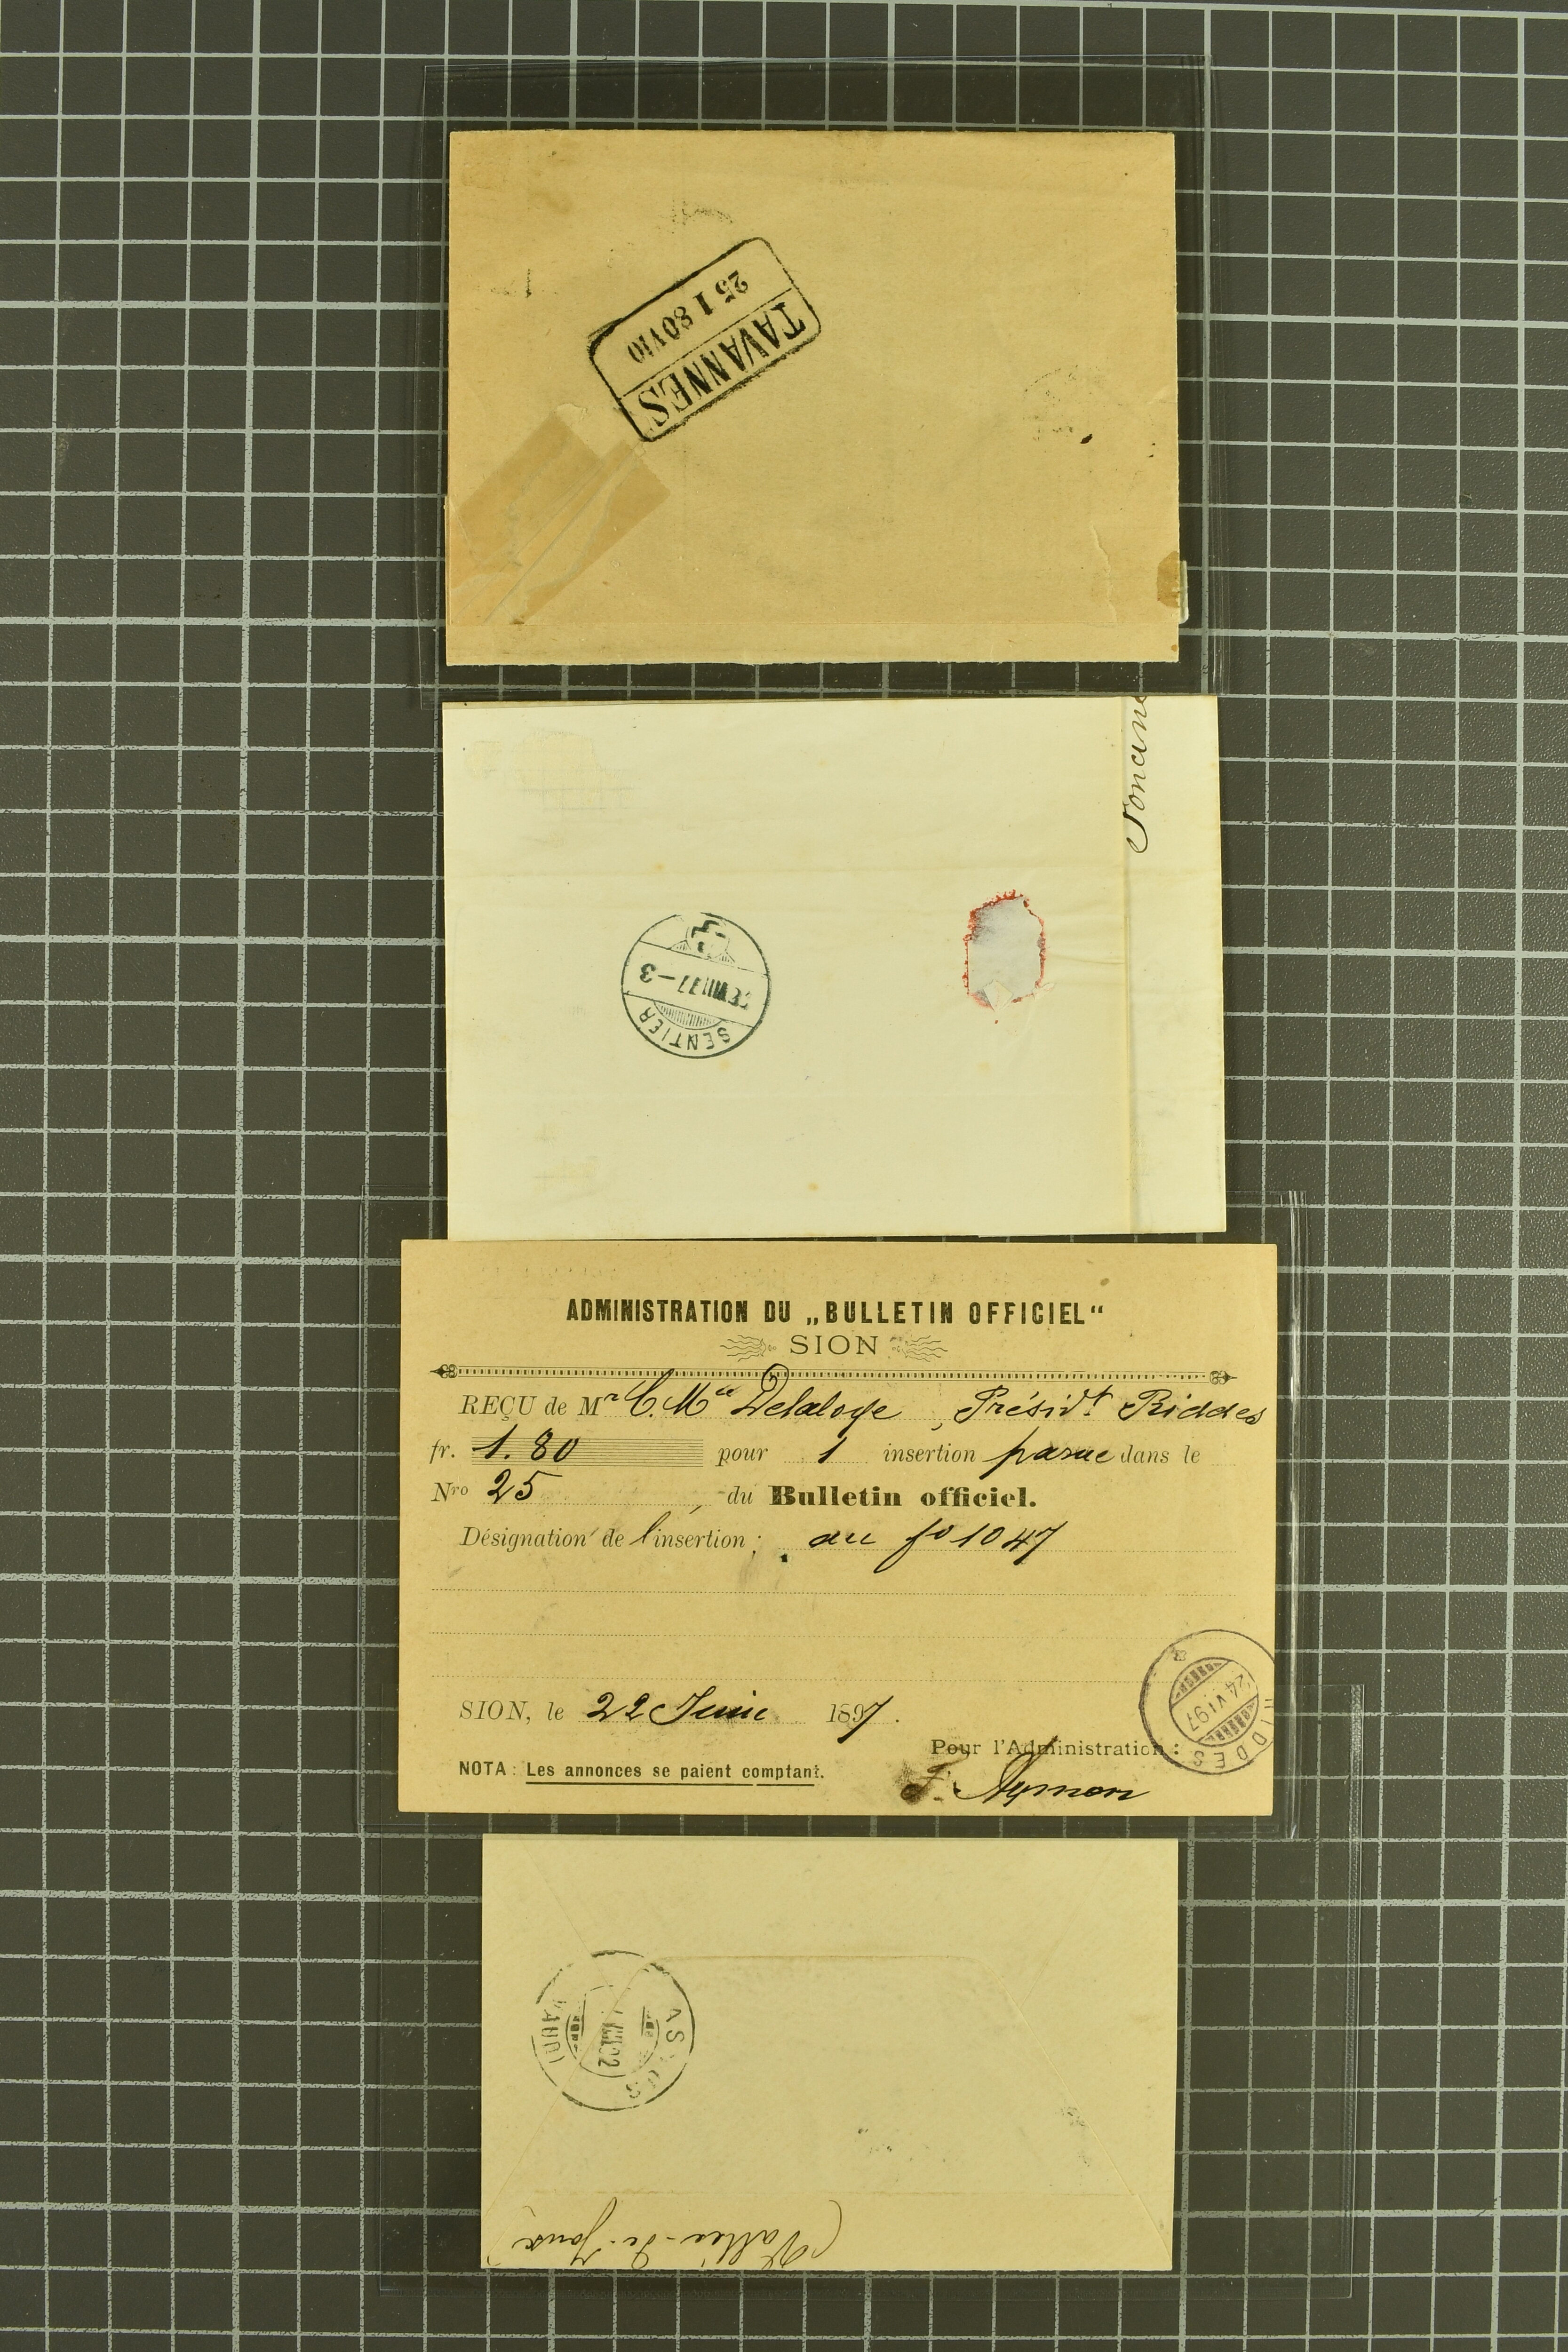 TAVANNES
25 I 80 V 10
SENTIER
VIII 97 – 3
ADMINISTRATION DU „BULLETIN OFFICIEL“
SION
REÇU de Mr C. Mce Delaloye, Présidt. Riddes
fr. 1.80 pour 1 insertion parue dans le
Nro 25, du Bulletin officiel.
Désignation de l'insertion: au fo 1047
SION, le 22 Juin 1897.
Pour l'Administration:
NOTA: Les annonces se paient comptant.
F. Aymon
RIDDES
24 VI 97
(VAUD)
(Vallée-de-Joux)